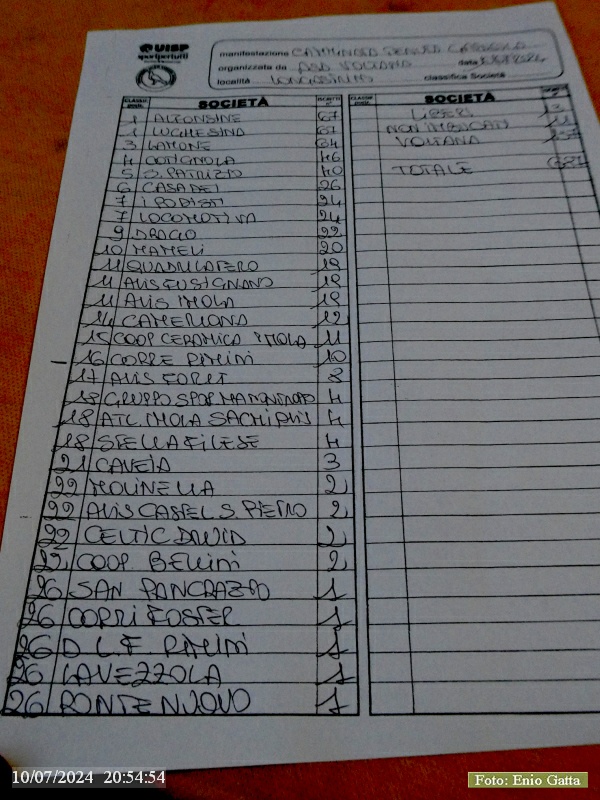 UISP
sportpertutti
manifestazione CAMMINATA
organizzata da ASD VOLTANA data
località LONGASTRINO classifica Società
CLASSIF. SOCIETÀ ISCRITTI
1 ALFONSINE 67
1 LUGHESINA 67
3 LAMONE 64
4 COTIGNOLA 46
5 S. PATRIZIO 40
6 CASADEI 26
7 I PODISTI 24
7 LOCOMOTIVA 24
9 DRAGO 22
10 MAMELI 20
11 QUADRILATERO 18
11 AVIS FUSIGNANO 18
11 AVIS IMOLA 18
14 CAMERLONA 12
15 COOP CERAMICA IMOLA 11
16 CORRE RIMINI 10
17 AVIS FORLI 8
18 GRUPPO SPOR 4
18 ATL. IMOLA SACMI AVIS 4
18 STELLA FILESE 4
21 CAVEJA 3
22 MOLINELLA 2
22 AVIS CASTEL S. PIETRO 2
22 CELTIC DRUID 2
22 COOP BELLINI 2
26 SAN PANCRAZIO 1
26 CORRI FOSTER 1
26 D L F RIMINI 1
26 LAVEZZOLA 1
26 PONTE NUOVO 1
SOCIETÀ
LIBERI 13
NON 11
VOLTANA
TOTALE
10/07/2024 20:54:54
Foto: Enio Gatta